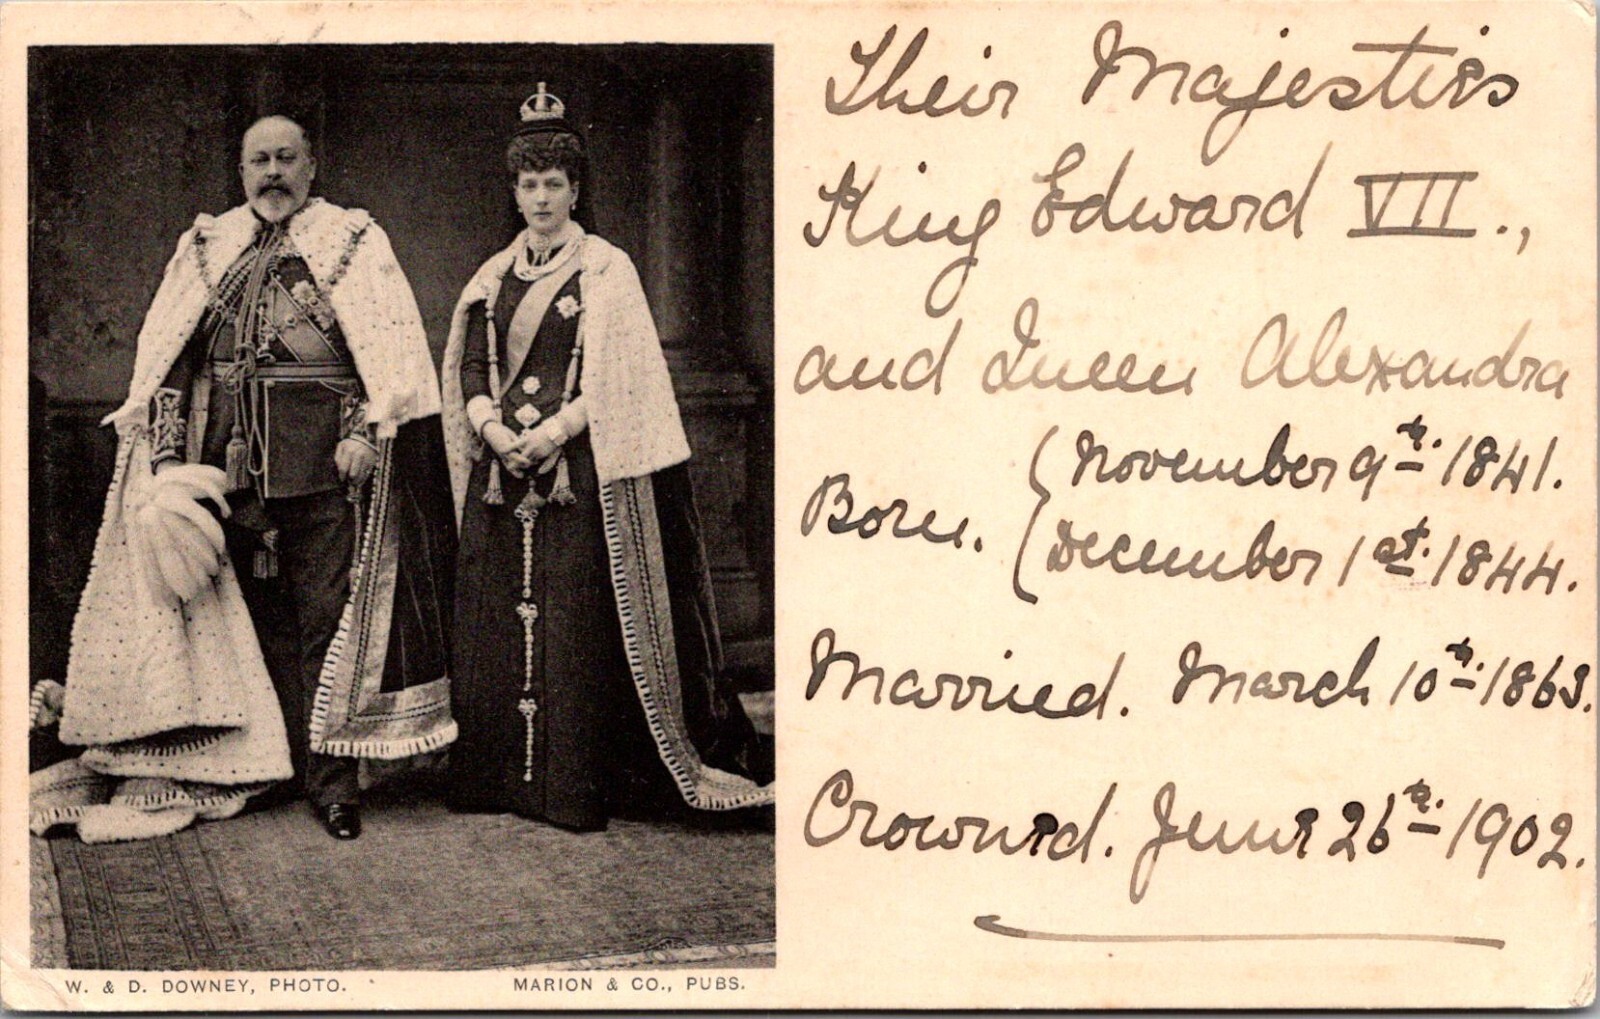 Their Majesties
King Edward VII.,
and Queen Alexandra
Born. { November 9th. 1841.
December 1st. 1844.
Married. March 10th. 1863.
Crowned. June 26th. 1902.
W. & D. DOWNEY, PHOTO.
MARION & CO., PUBS.